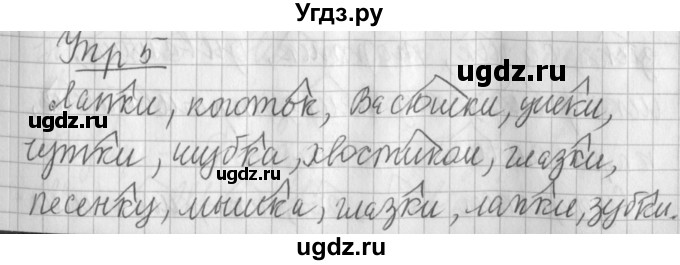 Угдз.ру
Упр 5
Лапки, коготок, Васюшки, ушки,
чутки, шубка, хвостиком, глазки,
песенку, мышка, глазки, лапки, зубки.
ugdz.ru
ugdz.ru
ugdz.ru
ugdz.ru
ugdz.ru